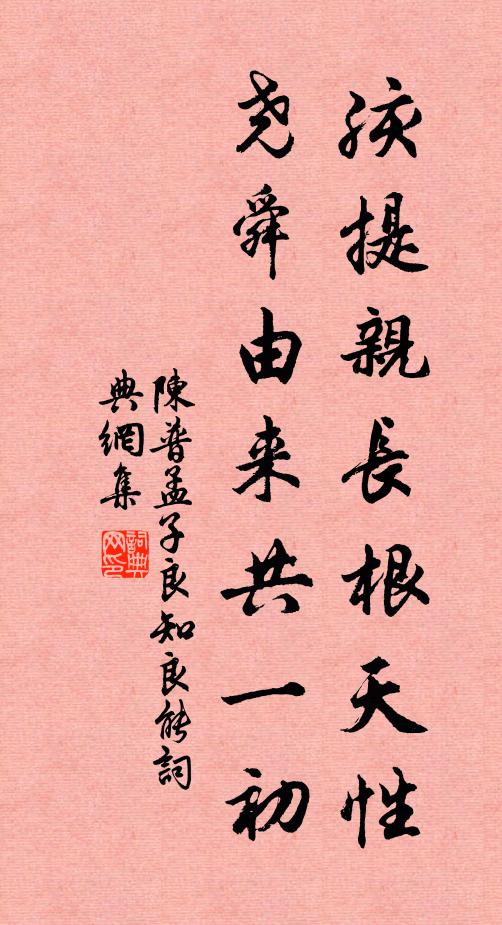 孩提親長根天性
堯舜由来共一初
陳普孟子良知良能詞
典網集
詞典
网印